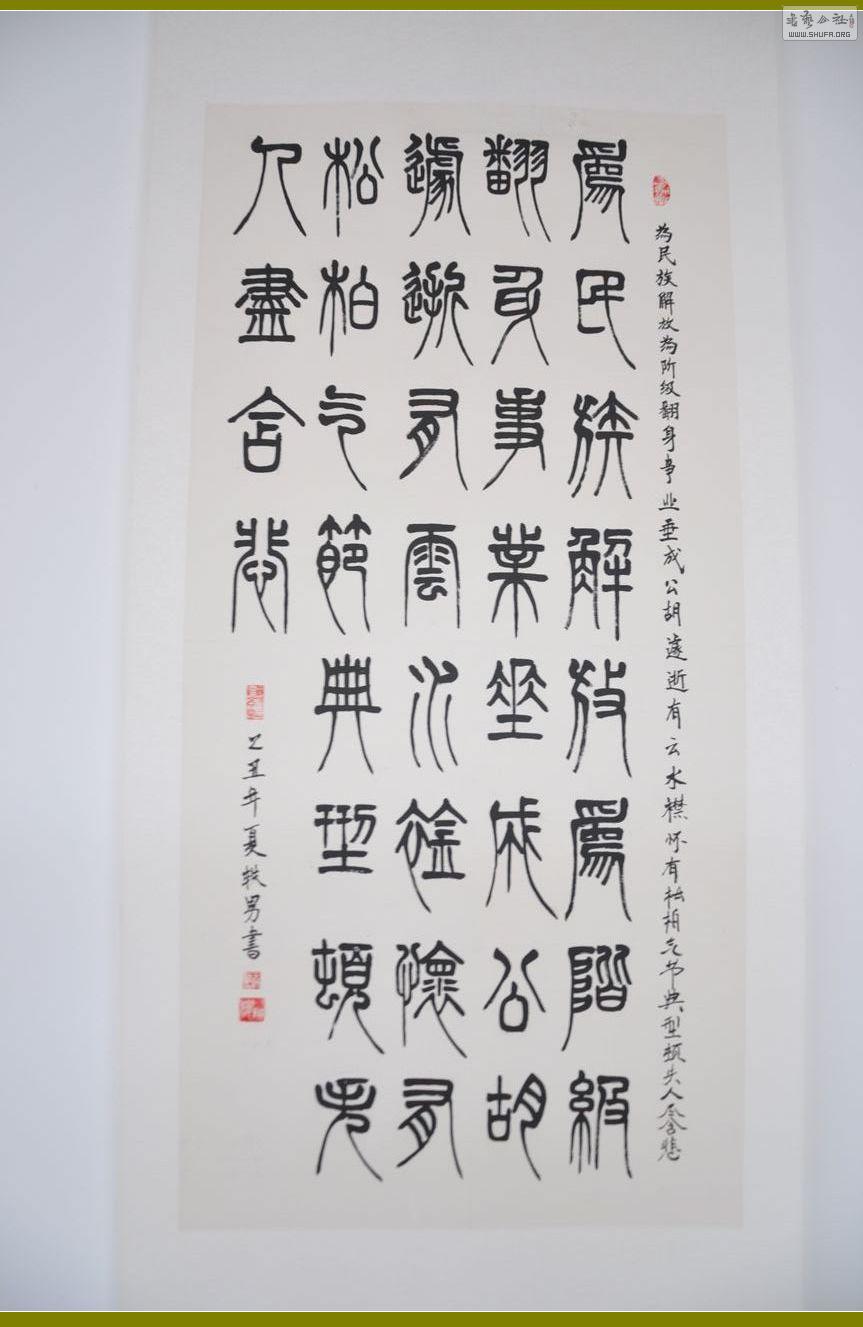 為民族解放為阶级翻身事业垂成公胡遽逝有云水襟怀有松柏气节典型顿失人尽含悲
爲民族解放爲階級
翻身事業垂成公胡
遽逝有雲水襟懷有
松柏气節典型頓失
人盡含悲
乙丑年夏轶男書
書藝公社
WWW.SHUFA.ORG